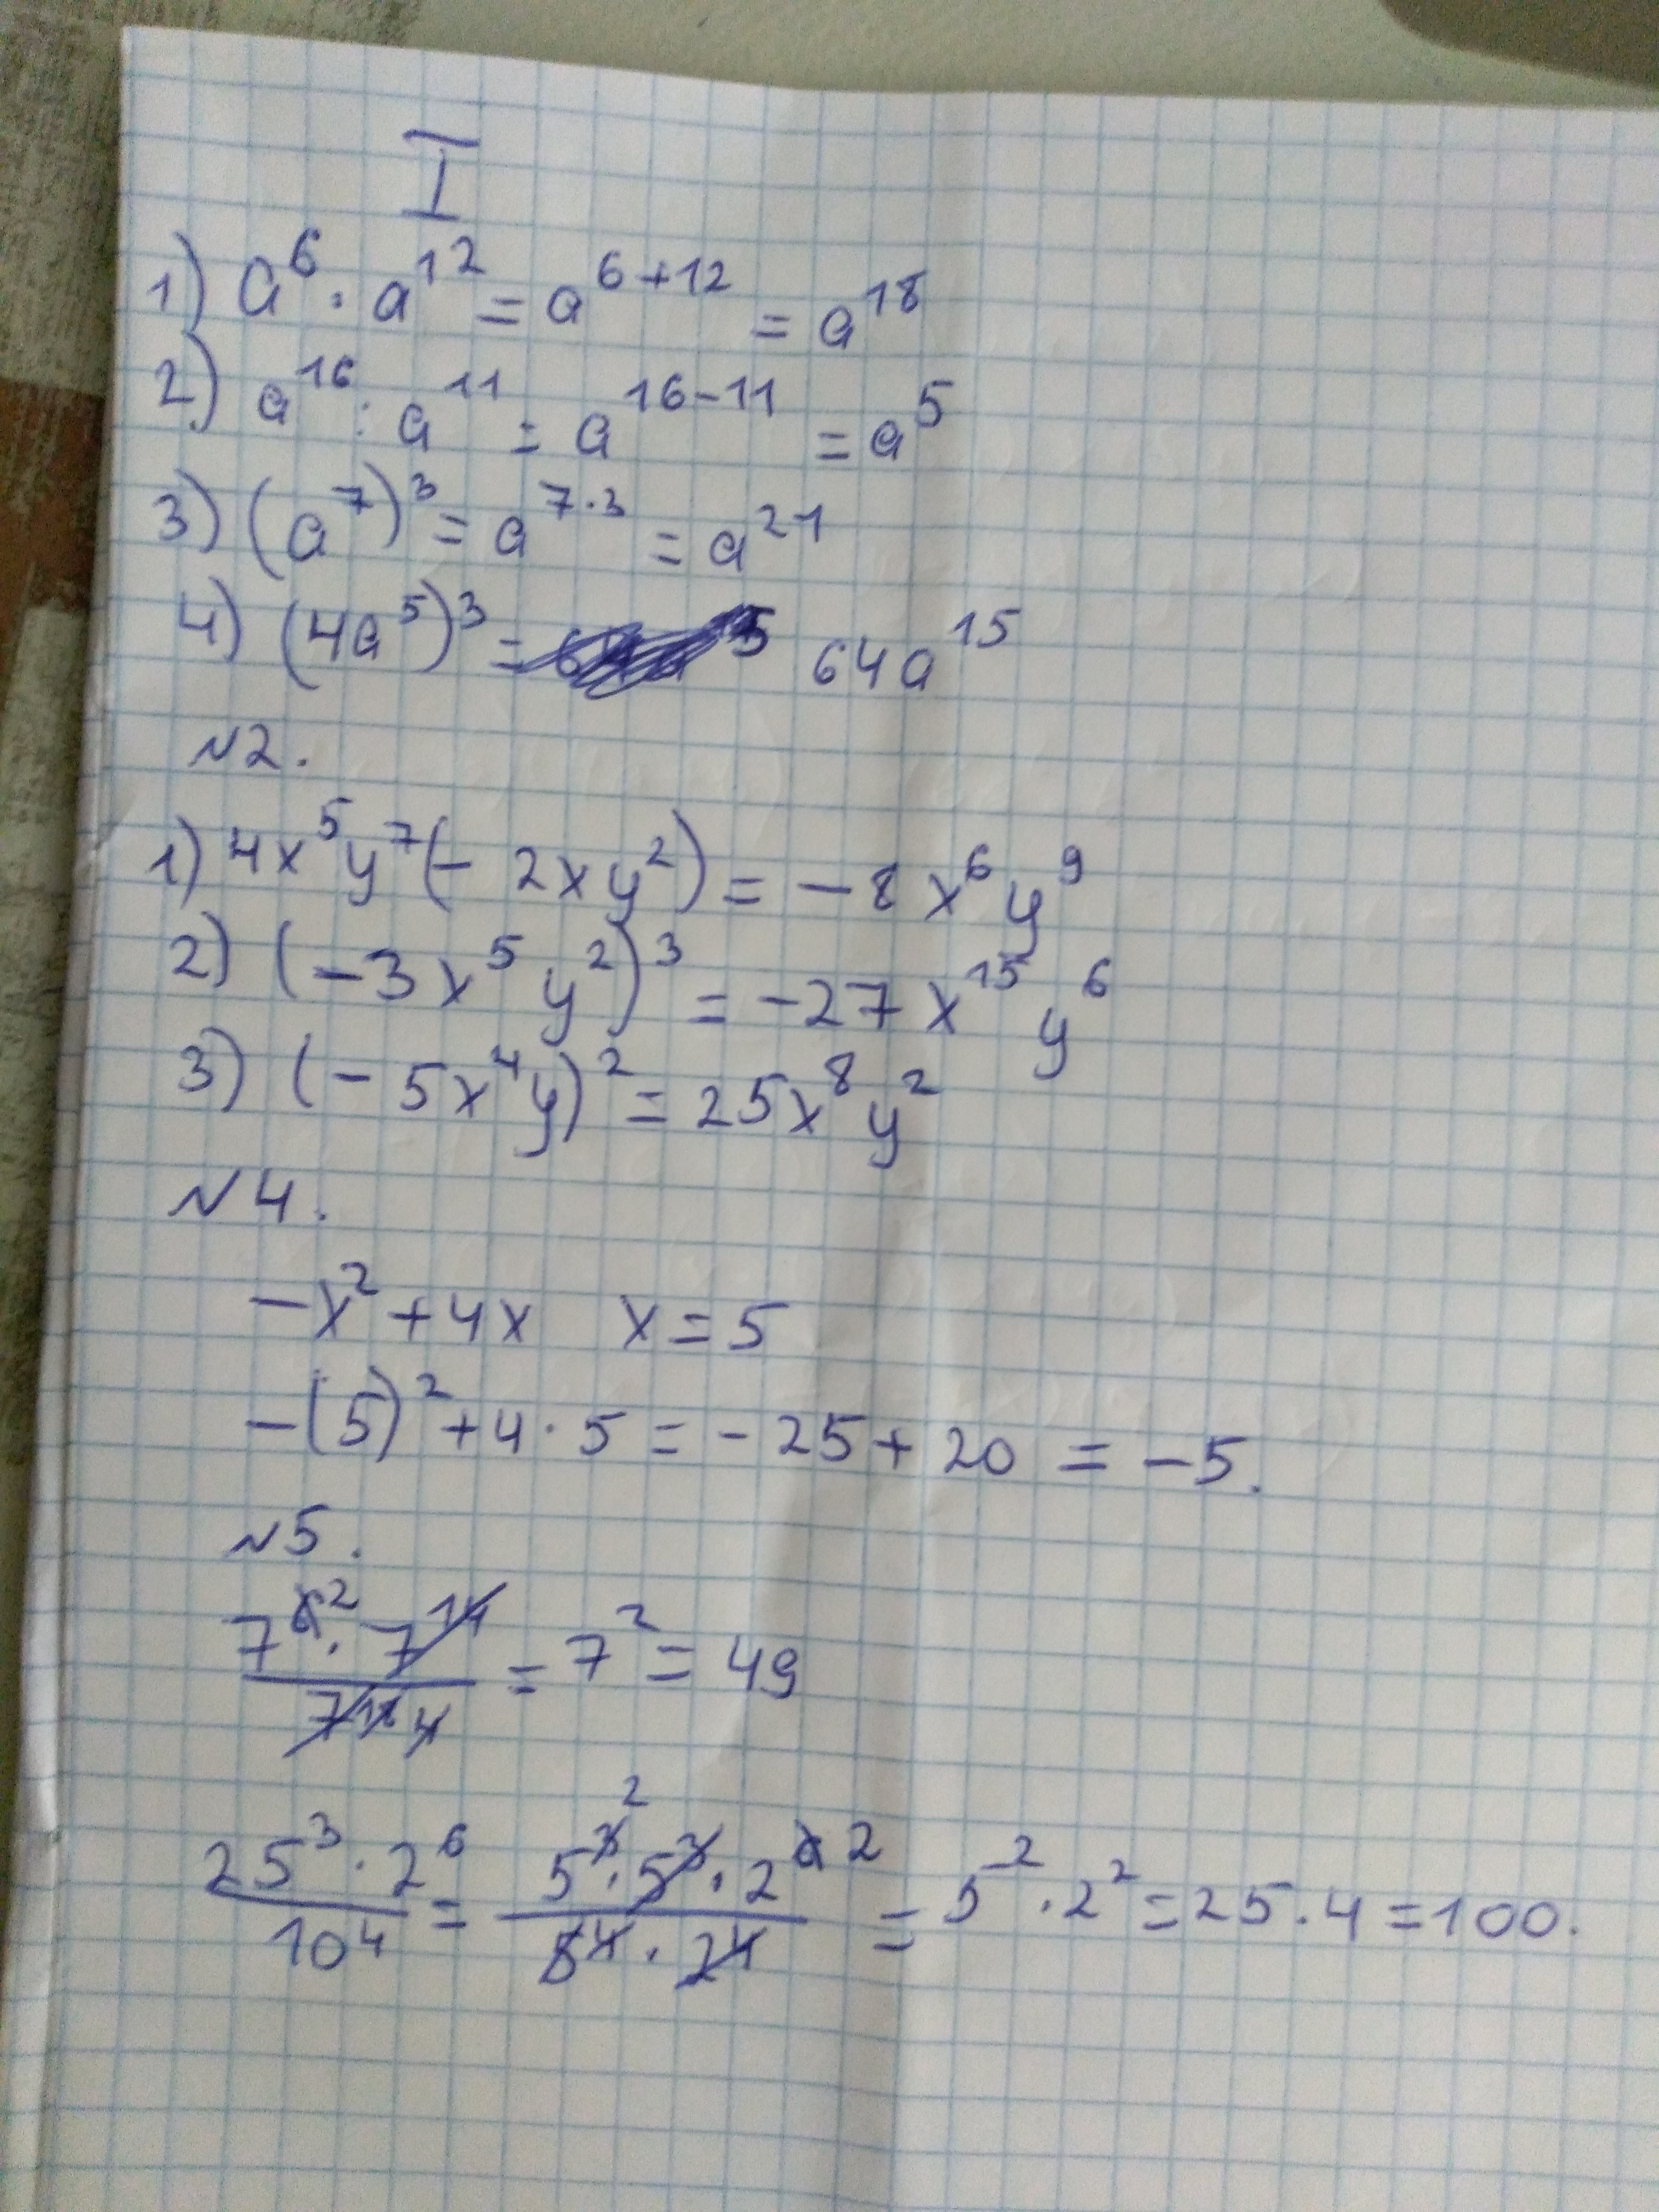 I
1) a⁶ · a¹² = a⁶⁺¹² = a¹⁸
2) a¹⁶ : a¹¹ = a¹⁶⁻¹¹ = a⁵
3) (a⁷)³ = a⁷·³ = a²¹
4) (4a⁵)³ = 64a¹⁵
N2.
1) 4x⁵y⁷(- 2xy²) = -8x⁶y⁹
2) (-3x⁵y²)³ = -27x¹⁵y⁶
3) (-5x⁴y)² = 25x⁸y²
N4.
-x² + 4x x = 5
-(5)² + 4 · 5 = -25 + 20 = -5.
N5.
= 7² = 49
25³ · 2⁶ / 10⁴ = 5³ · 5³ · 2⁶ / 5⁴ · 2⁴ = 5² · 2² = 25 · 4 = 100.